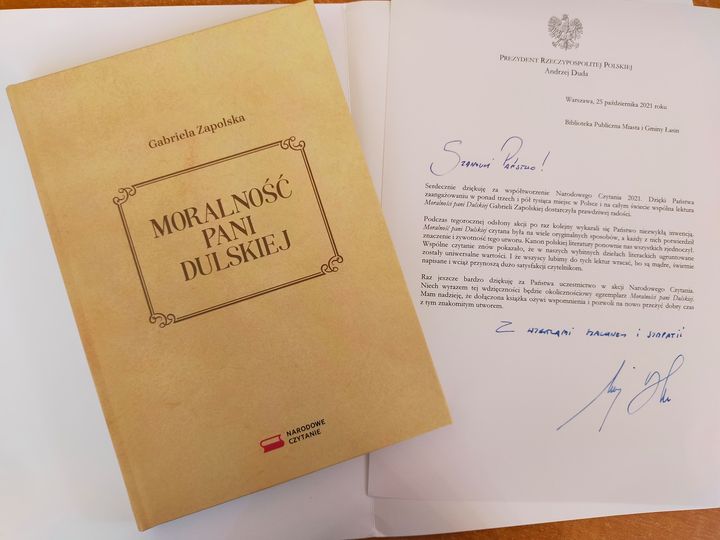 Gabriela Zapolska
MORALNOŚĆ
PANI
DULSKIEJ
NARODOWE
CZYTANIE
PREZYDENT RZECZYPOSPOLITEJ POLSKIEJ
Andrzej Duda
Warszawa, 25 października 2021 roku
Biblioteka Publiczna Miasta i Gminy Łasin
Szanowni Państwo!
Serdecznie dziękuję za współtworzenie Narodowego Czytania 2021. Dzięki Państwa
zaangażowaniu w ponad trzech i pół tysiąca miejsc w Polsce i na całym świecie wspólna lektura
Moralności pani Dulskiej Gabrieli Zapolskiej dostarczyła prawdziwej radości.
Podczas tegorocznej odsłony akcji po raz kolejny wykazali się Państwo niezwykłą inwencją.
Moralność pani Dulskiej czytana była na wiele oryginalnych sposobów, a każdy z nich potwierdził
znaczenie i żywotność tego utworu. Kanon polskiej literatury ponownie nas wszystkich zjednoczył.
Wspólne czytanie znów pokazało, że w naszych wybitnych dziełach literackich ugruntowane
zostały uniwersalne wartości. I że wszyscy lubimy do tych lektur wracać, bo są mądre, świetnie
napisane i wciąż przynoszą dużo satysfakcji czytelnikom.
Raz jeszcze bardzo dziękuję za Państwa uczestnictwo w akcji Narodowego Czytania.
Niech wyrazem tej wdzięczności będzie okolicznościowy egzemplarz Moralności pani Dulskiej.
Mam nadzieję, że dołączona książka ożywi wspomnienia i pozwoli na nowo przeżyć dobry czas
z tym znakomitym utworem.
Z wyrazami szacunku i sympatii